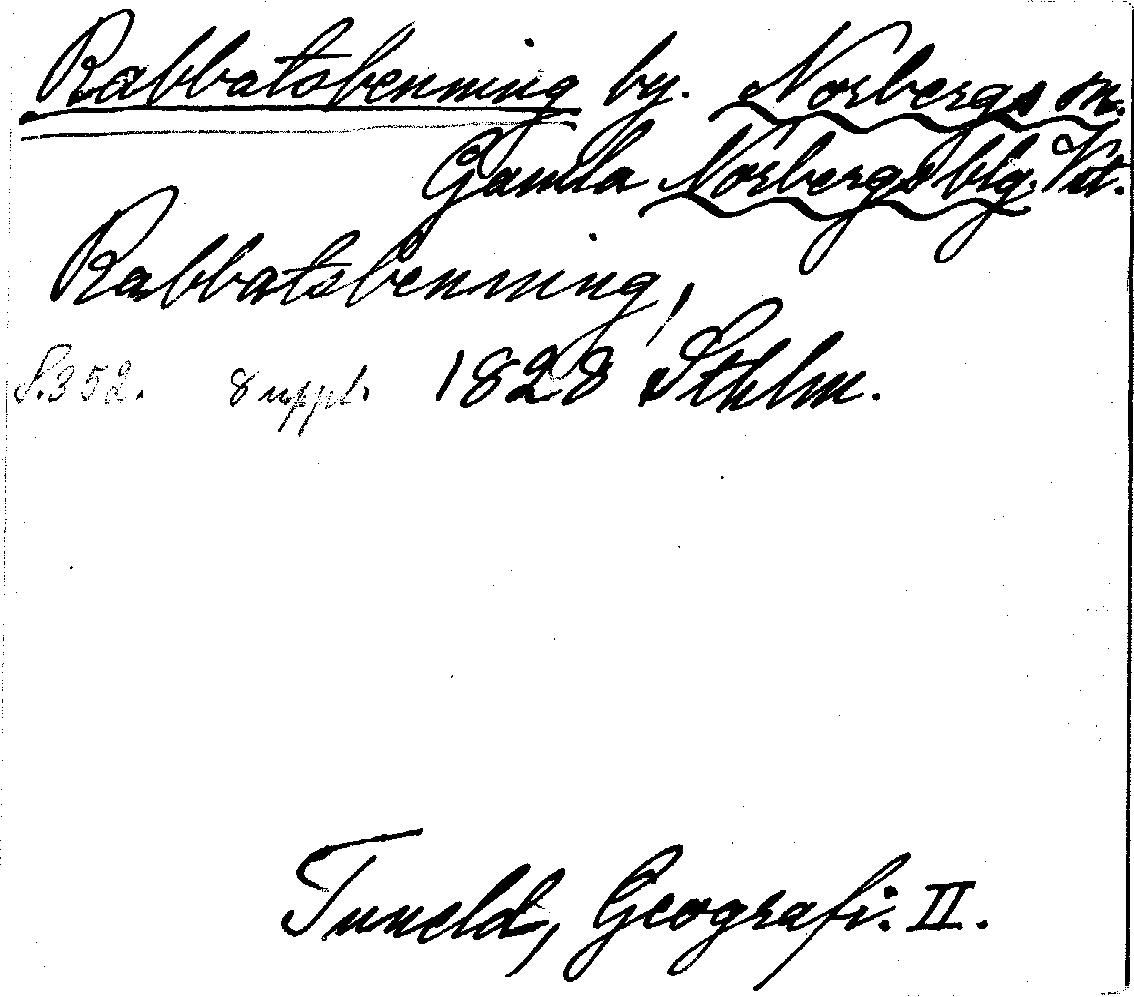 Rabbatsbenning by. Norbergs sn.
Gamla Norbergs blg. Vst.
Rabbatsbenning,
S.352. 8 uppl. 1828 Sthlm.
Tuneld, Geografi. II.